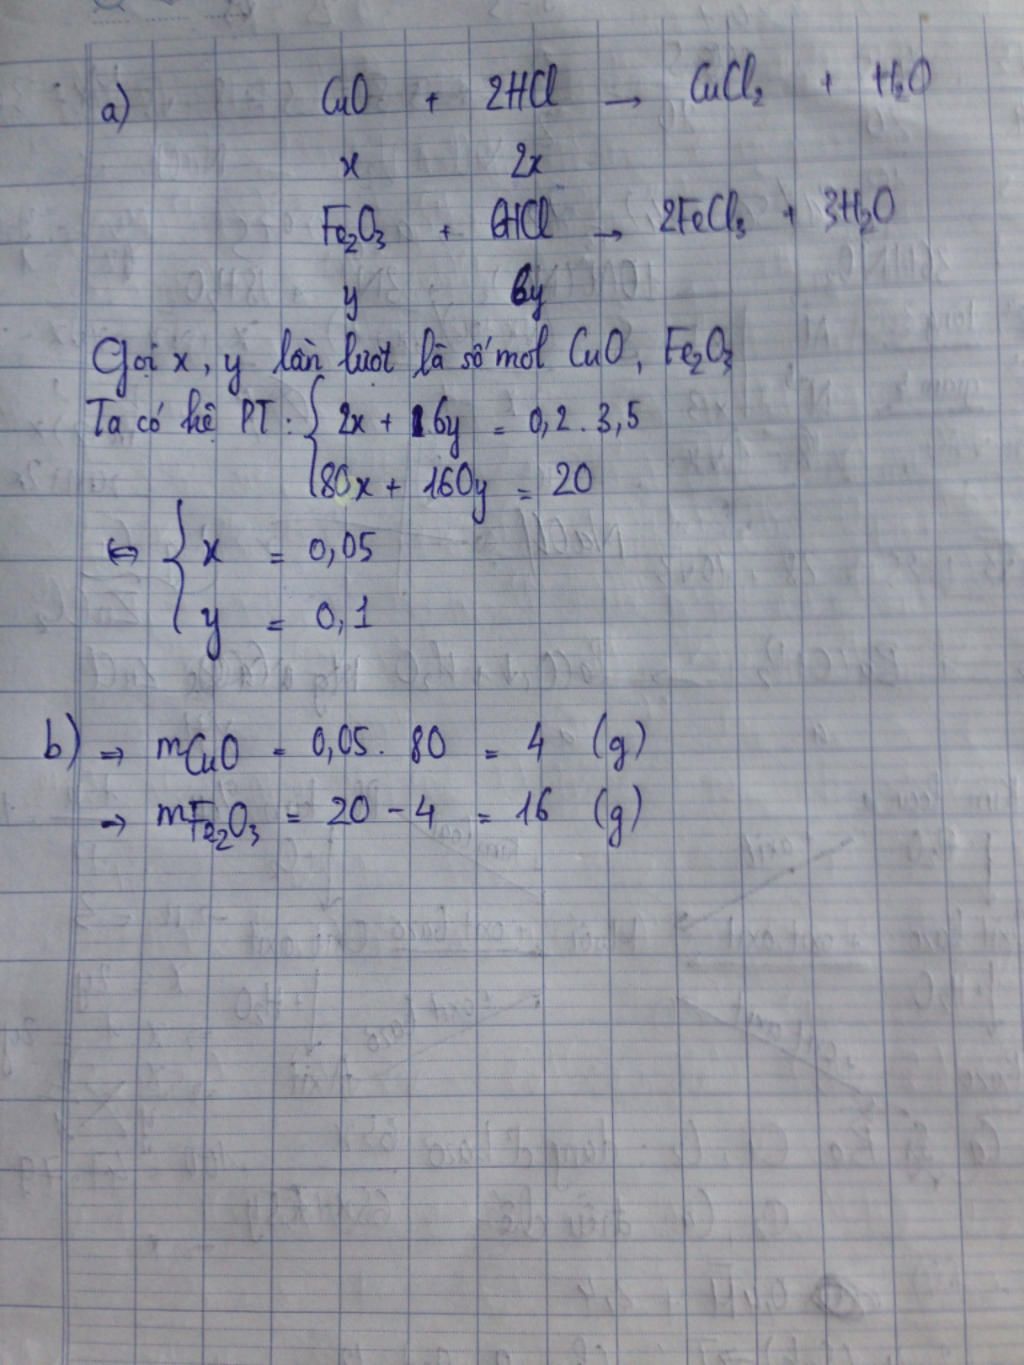 a) CuO + 2HCl → CuCl₂ + H₂O
x 2x
Fe₂O₃ + 6HCl → 2FeCl₃ + 3H₂O
y 6y
Gọi x, y lần lượt là số mol CuO, Fe₂O₃
Ta có hệ PT: { 2x + 6y = 0,2 . 3,5
80x + 160y = 20
⇔ { x = 0,05
y = 0,1
b) ⇒ mCuO = 0,05 . 80 = 4 (g)
→ mFe₂O₃ = 20 - 4 = 16 (g)